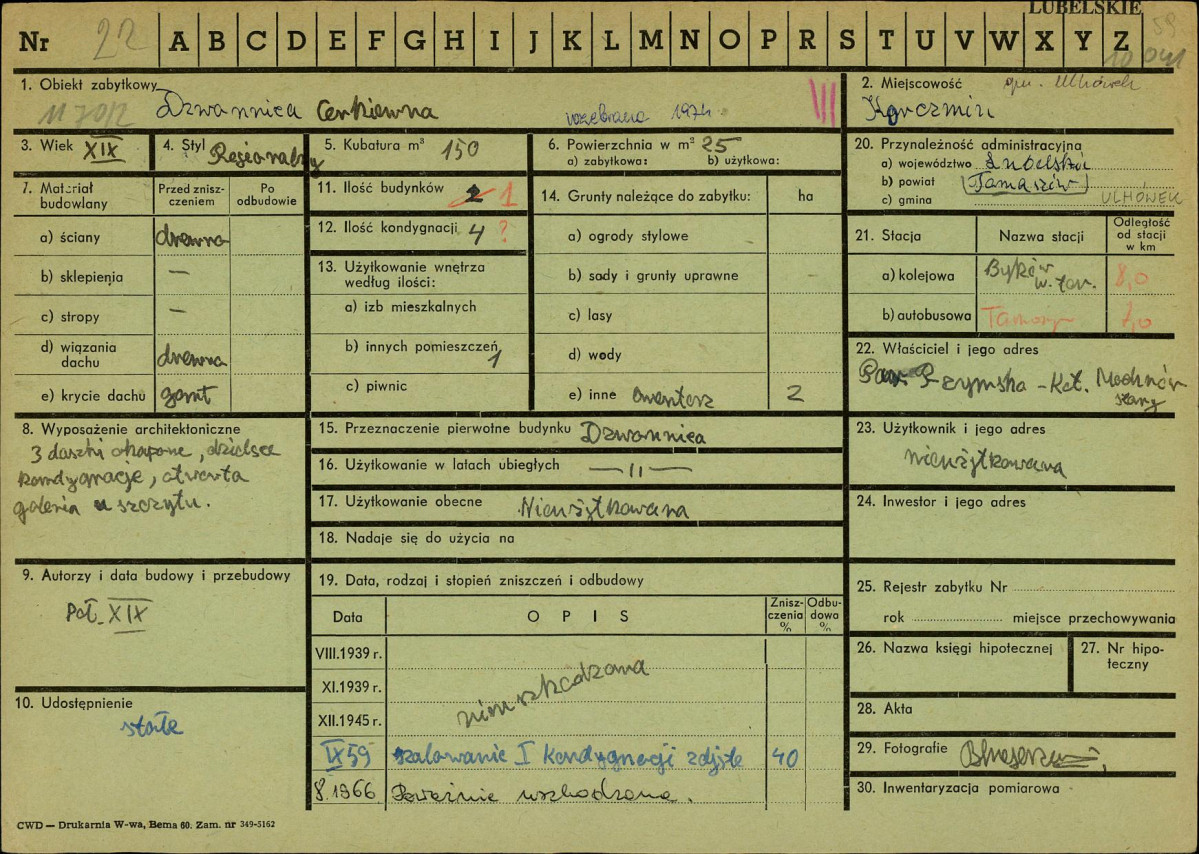 LUBELSKIE
59
Nr 22 A B C D E F G H I J K L M N O P R S T U V W X Y Z
1. Obiekt zabytkowy
Dzwonnica Cerkiewna
rozebrana 1974
2. Miejscowość gm. Ulhówek
Korczmin
3. Wiek XIX
4. Styl Regionalny
5. Kubatura m³ 150
6. Powierzchnia w m² 25
a) zabytkowa: b) użytkowa:
7. Materiał budowlany
Przed zniszczeniem
Po odbudowie
a) ściany drewno
b) sklepienia —
c) stropy —
d) wiązania dachu drewno
e) krycie dachu gont
8. Wyposażenie architektoniczne
3 daszki okapowe, dzielące
kondygnacje, otwarta
galeria u szczytu.
9. Autorzy i data budowy i przebudowy
Poł. XIX
10. Udostępnienie
stałe
11. Ilość budynków 2 1
12. Ilość kondygnacji 4 ?
13. Użytkowanie wnętrza
według ilości:
a) izb mieszkalnych
b) innych pomieszczeń 1
c) piwnic
14. Grunty należące do zabytku: ha
a) ogrody stylowe
b) sady i grunty uprawne
c) lasy
d) wody
e) inne cmentarz 2
15. Przeznaczenie pierwotne budynku Dzwonnica
16. Użytkowanie w latach ubiegłych —"—
17. Użytkowanie obecne Nieużytkowana
18. Nadaje się do użycia na
19. Data, rodzaj i stopień zniszczeń i odbudowy
Data
OPIS
Zniszczenia %
Odbudowa %
VIII.1939 r.
XI.1939 r.
XII.1945 r.
nieuszkodzona
IX 59 szalowanie I kondygnacji zdjęte 40
8.1966 Poważnie uszkodzona.
20. Przynależność administracyjna
a) województwo Lubelskie
b) powiat (Tomaszów)
c) gmina ULHÓWEK
21. Stacja
Nazwa stacji
Odległość od stacji w km
a) kolejowa 8,0
b) autobusowa 7,0
22. Właściciel i jego adres
Rzymsko-Kat. Machnów
Stary
23. Użytkownik i jego adres
nieużytkowana
24. Inwestor i jego adres
25. Rejestr zabytku Nr
rok miejsce przechowywania
26. Nazwa księgi hipotecznej
27. Nr hipoteczny
28. Akta
29. Fotografie
30. Inwentaryzacja pomiarowa
CWD — Drukarnia W-wa, Bema 60. Zam. nr 349-5162